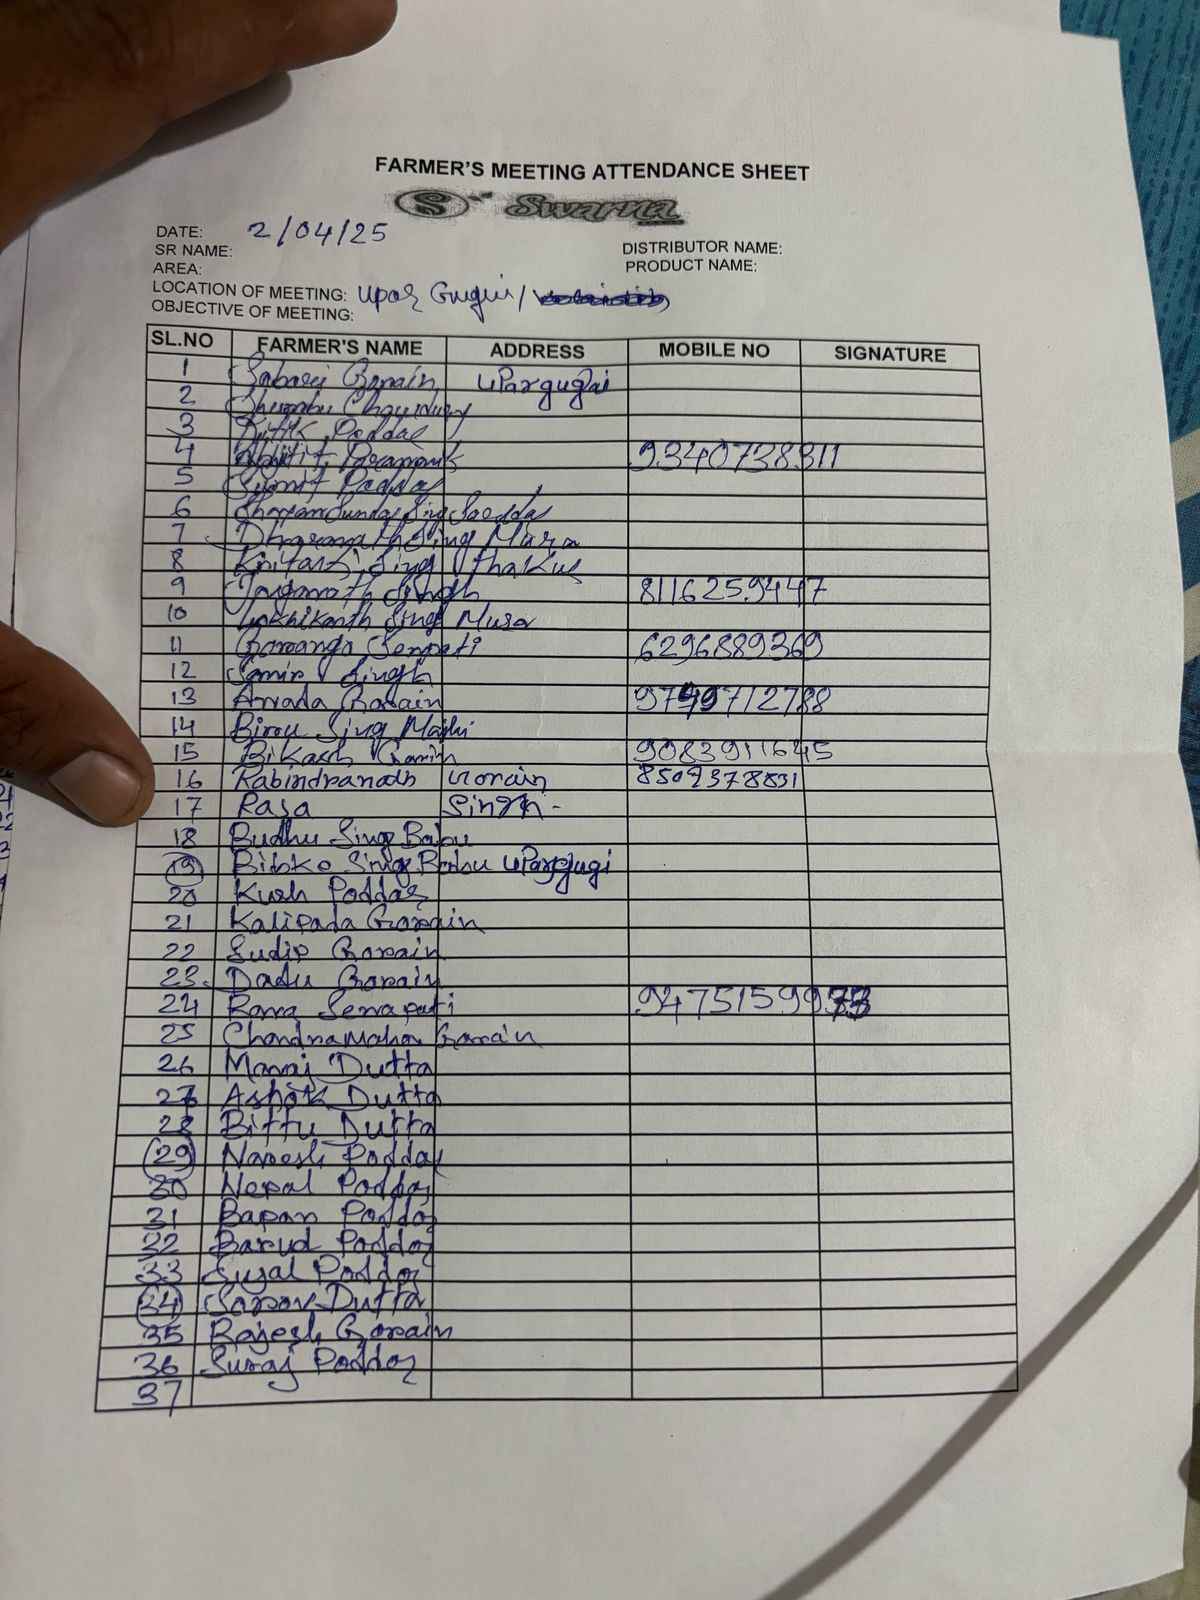 FARMER'S MEETING ATTENDANCE SHEET
S Swarna
DATE: 2/04/25
SR NAME:
DISTRIBUTOR NAME:
AREA:
PRODUCT NAME:
LOCATION OF MEETING: Upar Gugui/
OBJECTIVE OF MEETING:
SL.NO FARMER'S NAME ADDRESS MOBILE NO SIGNATURE
1 Gorain upargugai
2 Chaudhury
3 Poddar
4 Paramanik 9340738311
5 Sumit Poddar
6 ShyamSundar Sing Sardar
7 Dharamnath Sing Mura
8 Kritart Sing Thakur
9 Jaganath Singh 8116259447
10 Lakhikanth Sing Mura
11 Gouranga Senpati 6296889369
12 Samir Singh
13 Annada Gorain 9749712788
14 Biru Sing Majhi
15 Bikash Gorain 9083911645
16 Rabindranath Gorain 8509378831
17 Rasa Singh -
18 Budhu Sing Babu
19 Bibko Sing Babu upargugi
20 Kush Poddar
21 Kalipada Gorain
22 Sudip Gorain
23. Dadu Gorain
24 Rama Senapati 9475159973
25 Chandra Mohan Gorain
26 Manaj Dutta
27 Ashok Dutta
28 Bittu Dutta
29 Naresh Poddar
30 Nepal Poddar
31 Bapan Poddar
32 Barud Poddar
33 Sujal Poddar
34 Dutta
35 Rajesh Gorain
36 Suraj Poddar
37